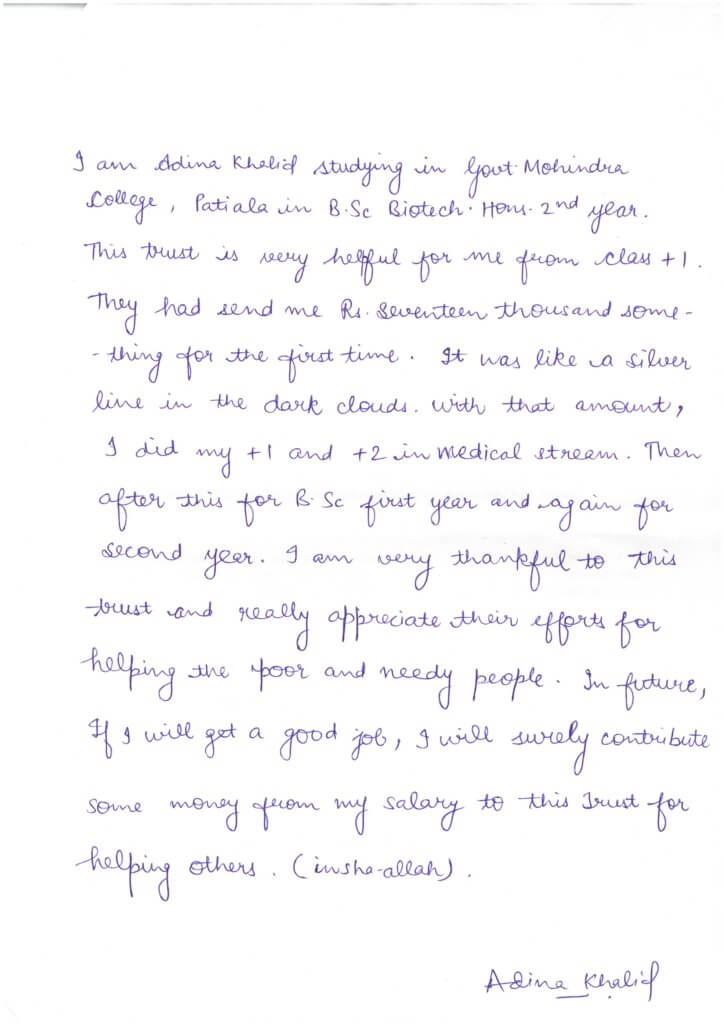 I am Adina Khalid studying in Govt. Mohindra
College, Patiala in B.Sc Biotech. Hons. 2nd year.
This trust is very helpful for me from class +1.
They had send me Rs. Seventeen thousand some-
-thing for the first time. It was like a silver
line in the dark clouds. With that amount,
I did my +1 and +2 in medical stream. Then
after this for B.Sc first year and again for
second year. I am very thankful to this
trust and really appreciate their efforts for
helping the poor and needy people. In future,
If I will get a good job, I will surely contribute
some money from my salary to this Trust for
helping others. (insha-allah).
Adina Khalid